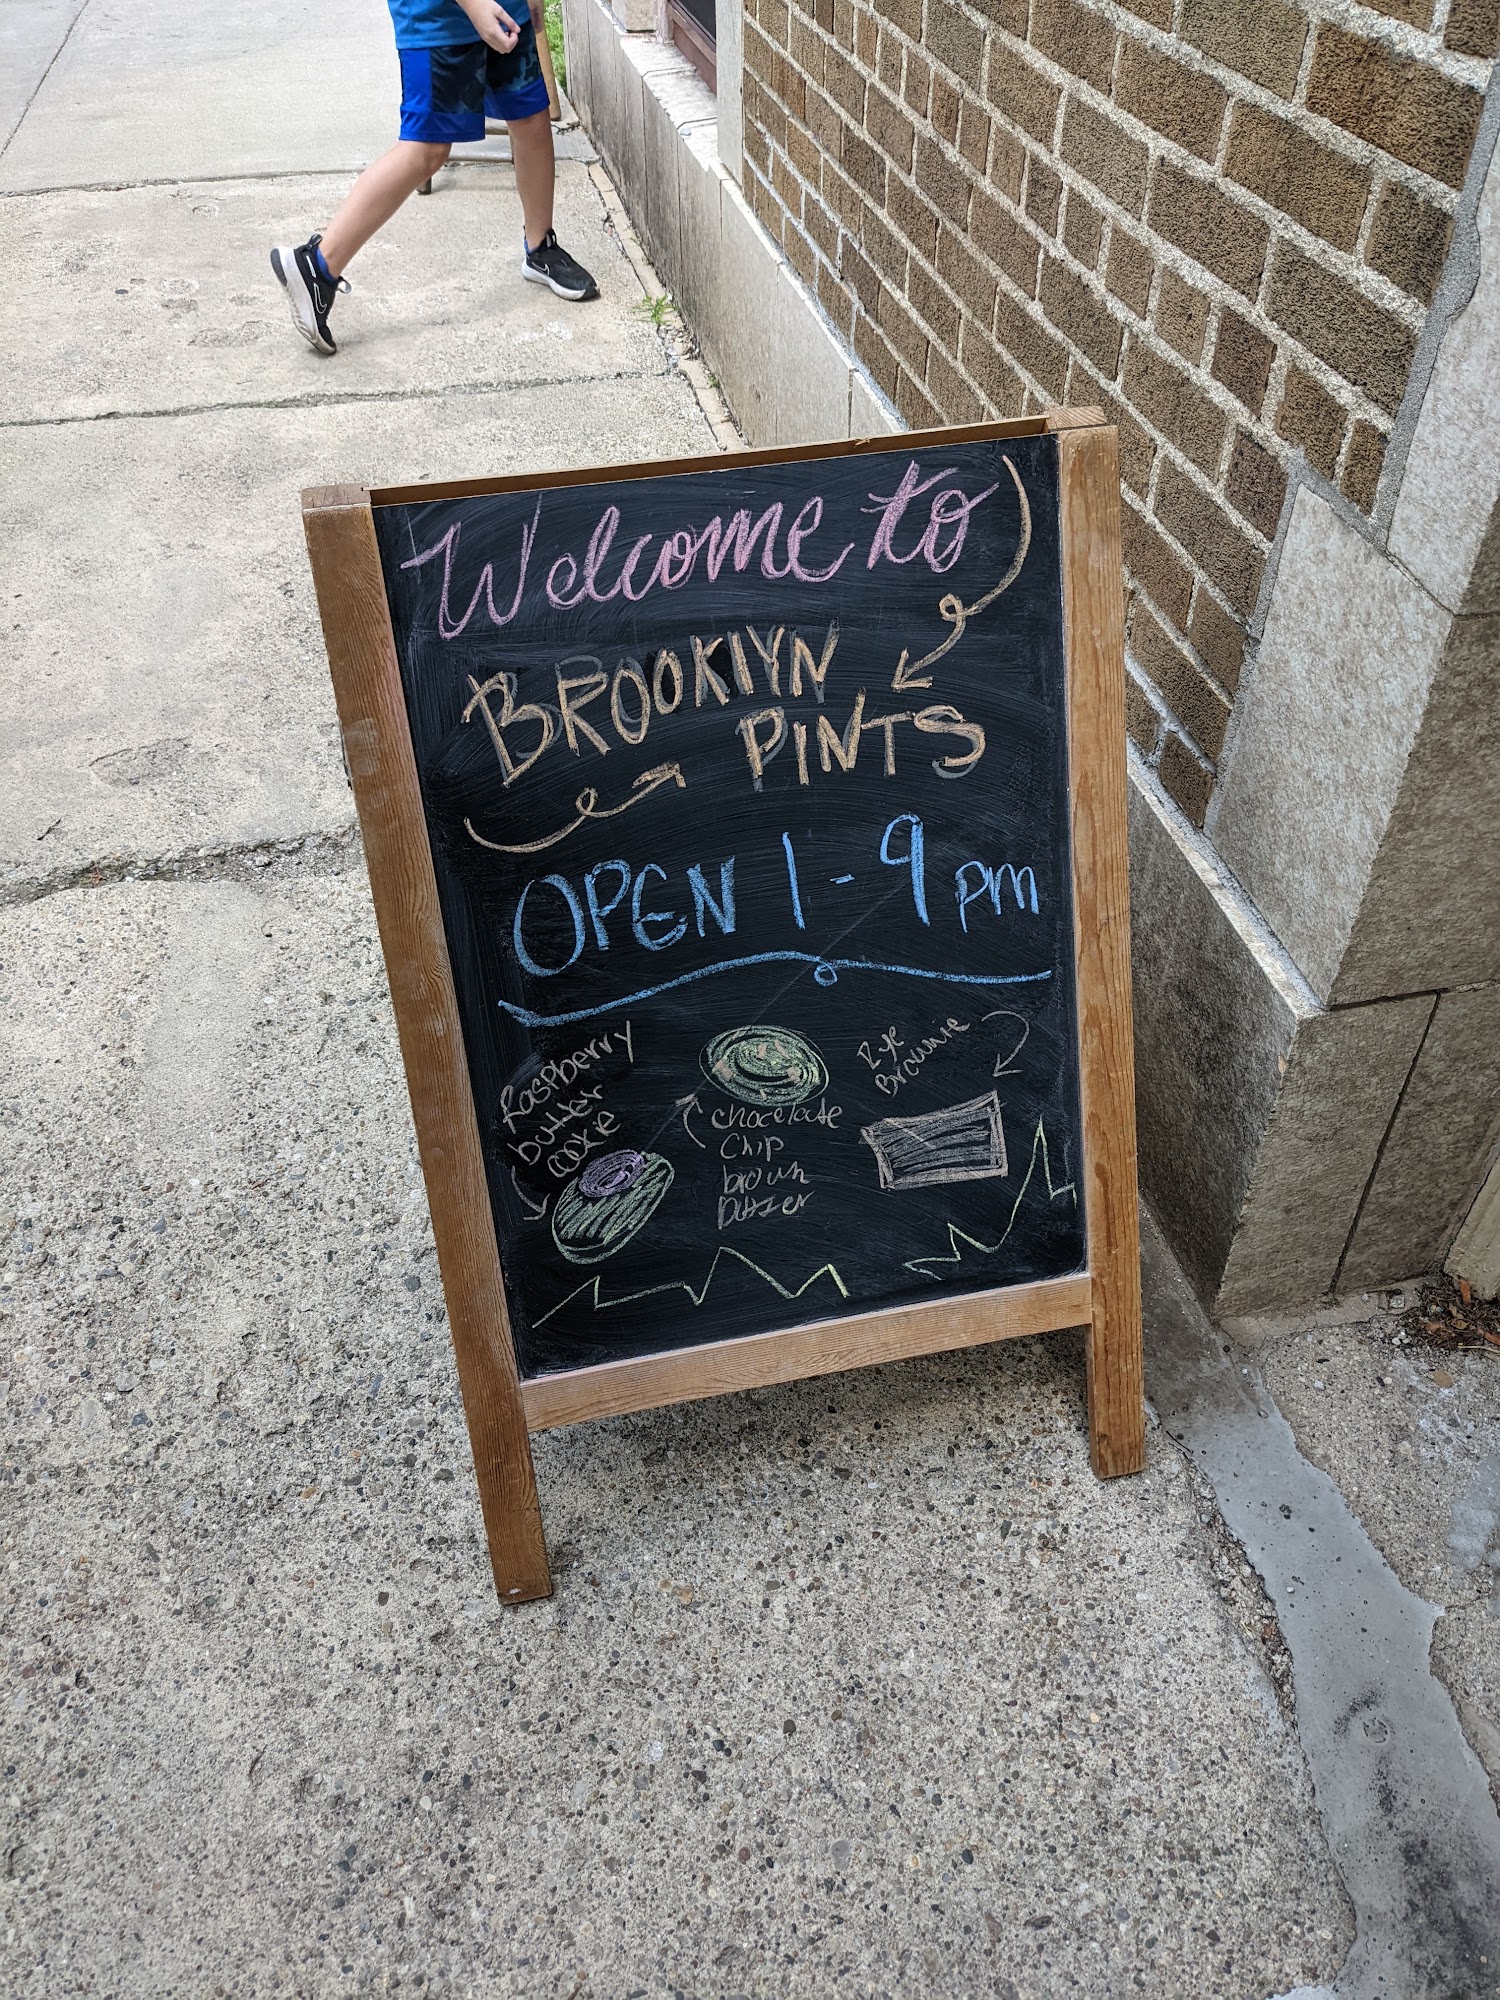 Welcome to
BROOKLYN
PINTS
OPEN 1-9 pm
Raspberry
butter
cookie
chocolate
Chip
brown
butter
Rye
Brownie